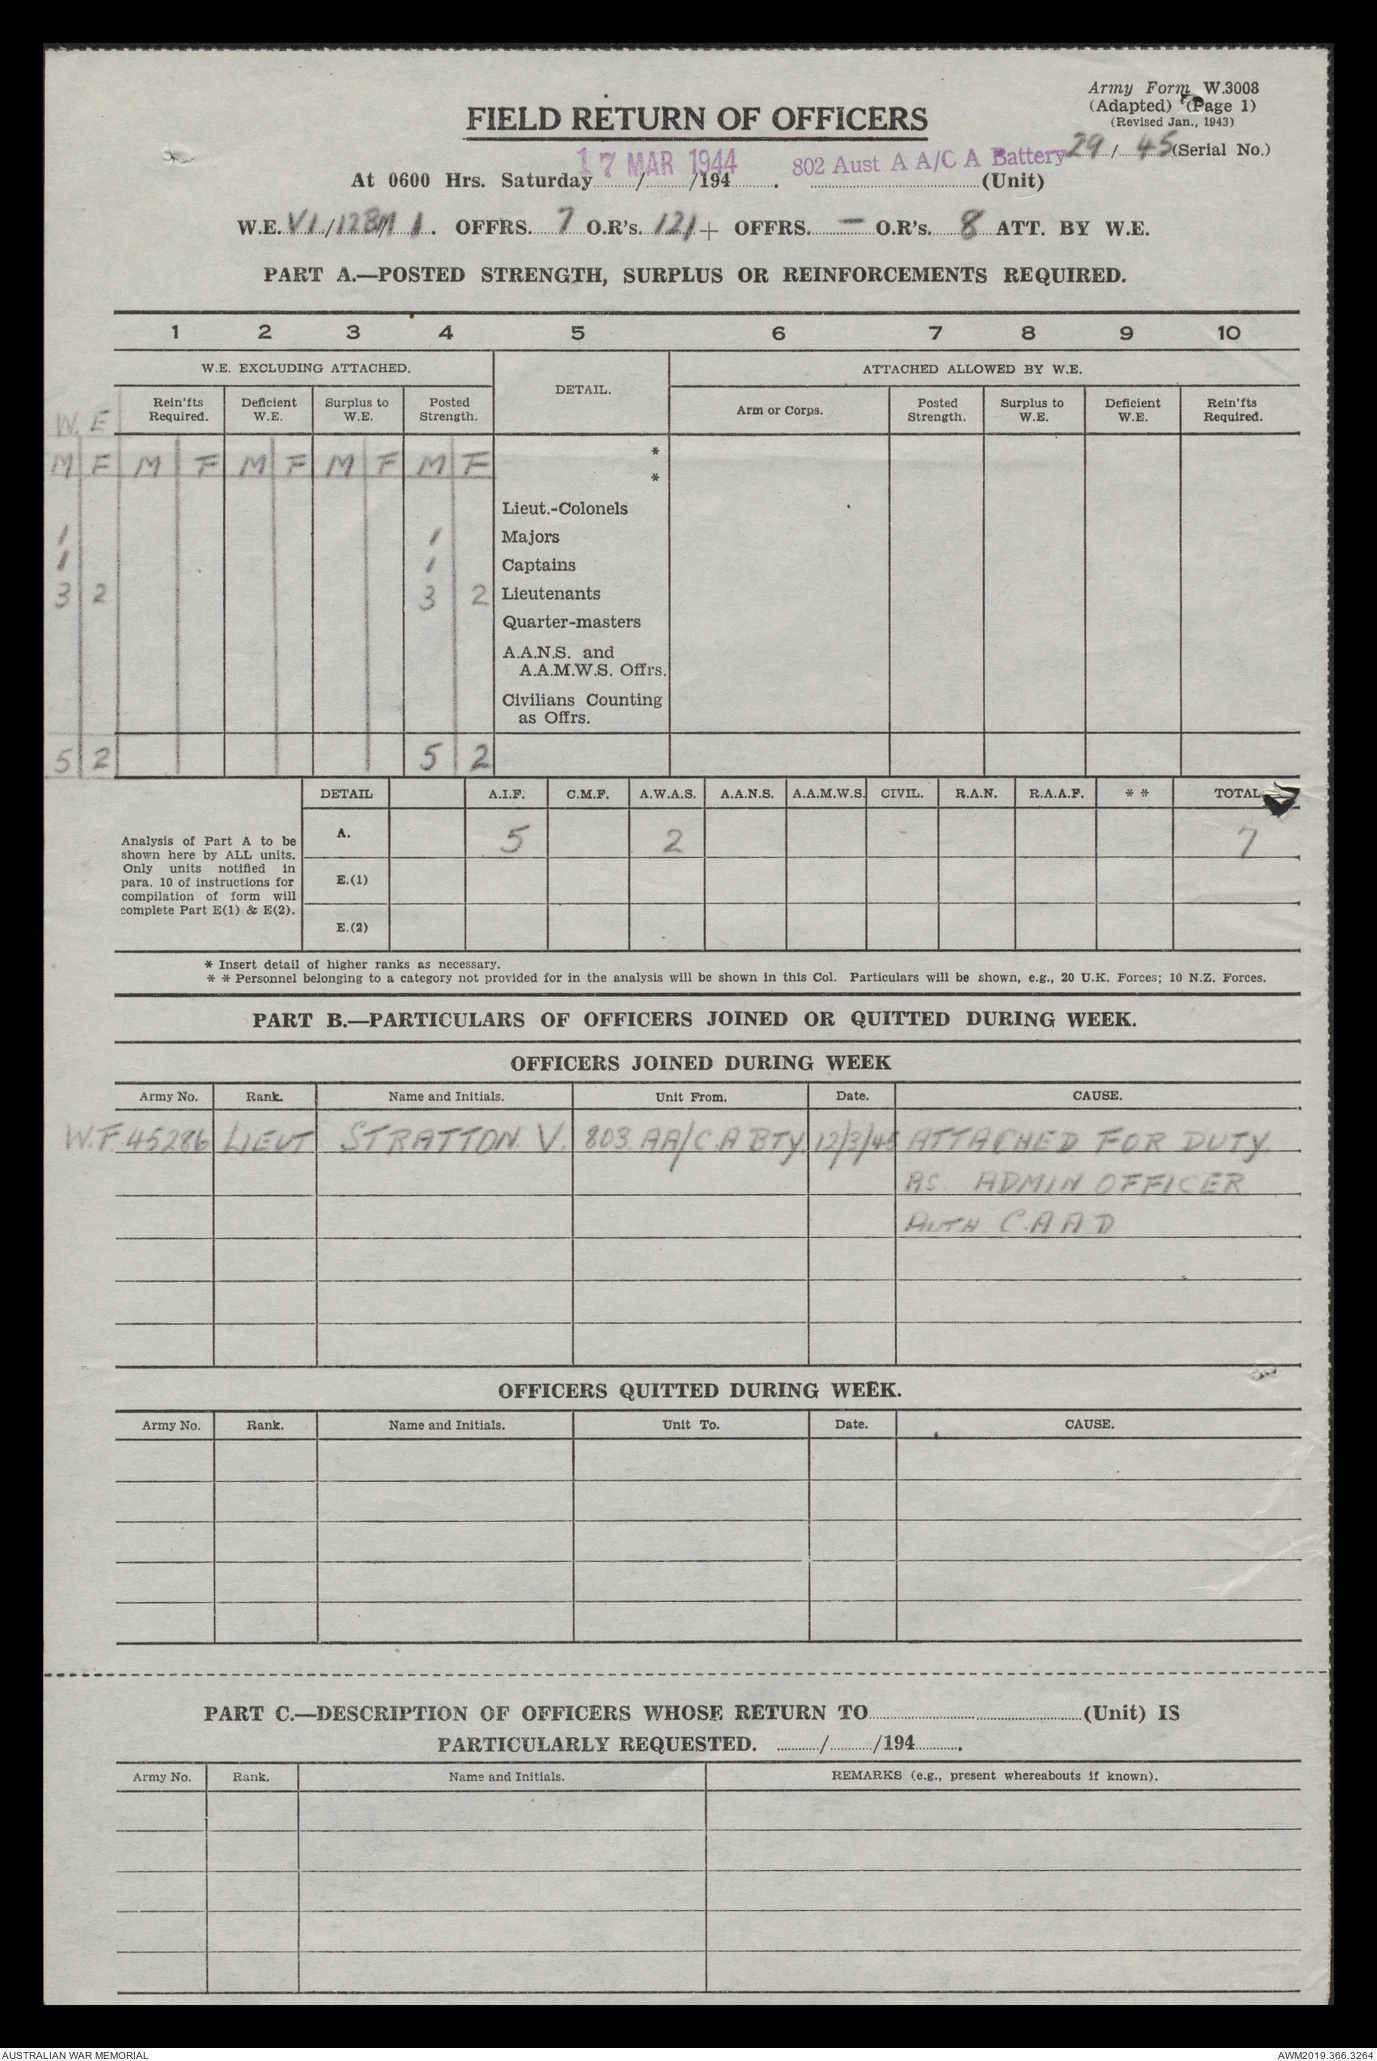 Army Form W.3008
(Adapted) (Page 1)
(Revised Jan., 1943)
FIELD RETURN OF OFFICERS
29 / 45 (Serial No.)
17 MAR 1944 802 Aust A A/C A Battery
At 0600 Hrs. Saturday / /194 . (Unit)
W.E. VI /12BM/ 1. OFFRS. 7 O.R's. 121 + OFFRS. — O.R's. 8 ATT. BY W.E.
PART A.—POSTED STRENGTH, SURPLUS OR REINFORCEMENTS REQUIRED.
1 2 3 4 5 6 7 8 9 10
W.E. EXCLUDING ATTACHED. DETAIL. ATTACHED ALLOWED BY W.E.
W.E Rein'fts Required. Deficient W.E. Surplus to W.E. Posted Strength. Arm or Corps. Posted Strength. Surplus to W.E. Deficient W.E. Rein'fts Required.
*
M F M F M F M F M F
*
Lieut.-Colonels
1 1 Majors
1 1 Captains
3 2 3 2 Lieutenants
Quarter-masters
A.A.N.S. and
A.A.M.W.S. Offrs.
Civilians Counting
as Offrs.
5 2 5 2
DETAIL A.I.F. C.M.F. A.W.A.S. A.A.N.S. A.A.M.W.S. CIVIL. R.A.N. R.A.A.F. * * TOTAL
Analysis of Part A to be
shown here by ALL units.
Only units notified in
para. 10 of instructions for
compilation of form will
complete Part E(1) & E(2).
A. 5 2 7
E.(1)
E.(2)
* Insert detail of higher ranks as necessary.
* * Personnel belonging to a category not provided for in the analysis will be shown in this Col. Particulars will be shown, e.g., 20 U.K. Forces; 10 N.Z. Forces.
PART B.—PARTICULARS OF OFFICERS JOINED OR QUITTED DURING WEEK.
OFFICERS JOINED DURING WEEK
Army No. Rank. Name and Initials. Unit From. Date. CAUSE.
W.F.45286 LIEUT STRATTON V. 803 AA/C.A BTY. 12/3/45 ATTACHED FOR DUTY.
AS ADMIN OFFICER
AUTH C.A A D
OFFICERS QUITTED DURING WEEK.
Army No. Rank. Name and Initials. Unit To. Date. CAUSE.
PART C.—DESCRIPTION OF OFFICERS WHOSE RETURN TO (Unit) IS
PARTICULARLY REQUESTED. / /194 .
Army No. Rank. Name and Initials. REMARKS (e.g., present whereabouts if known).
AUSTRALIAN WAR MEMORIAL AWM2019.366.3264